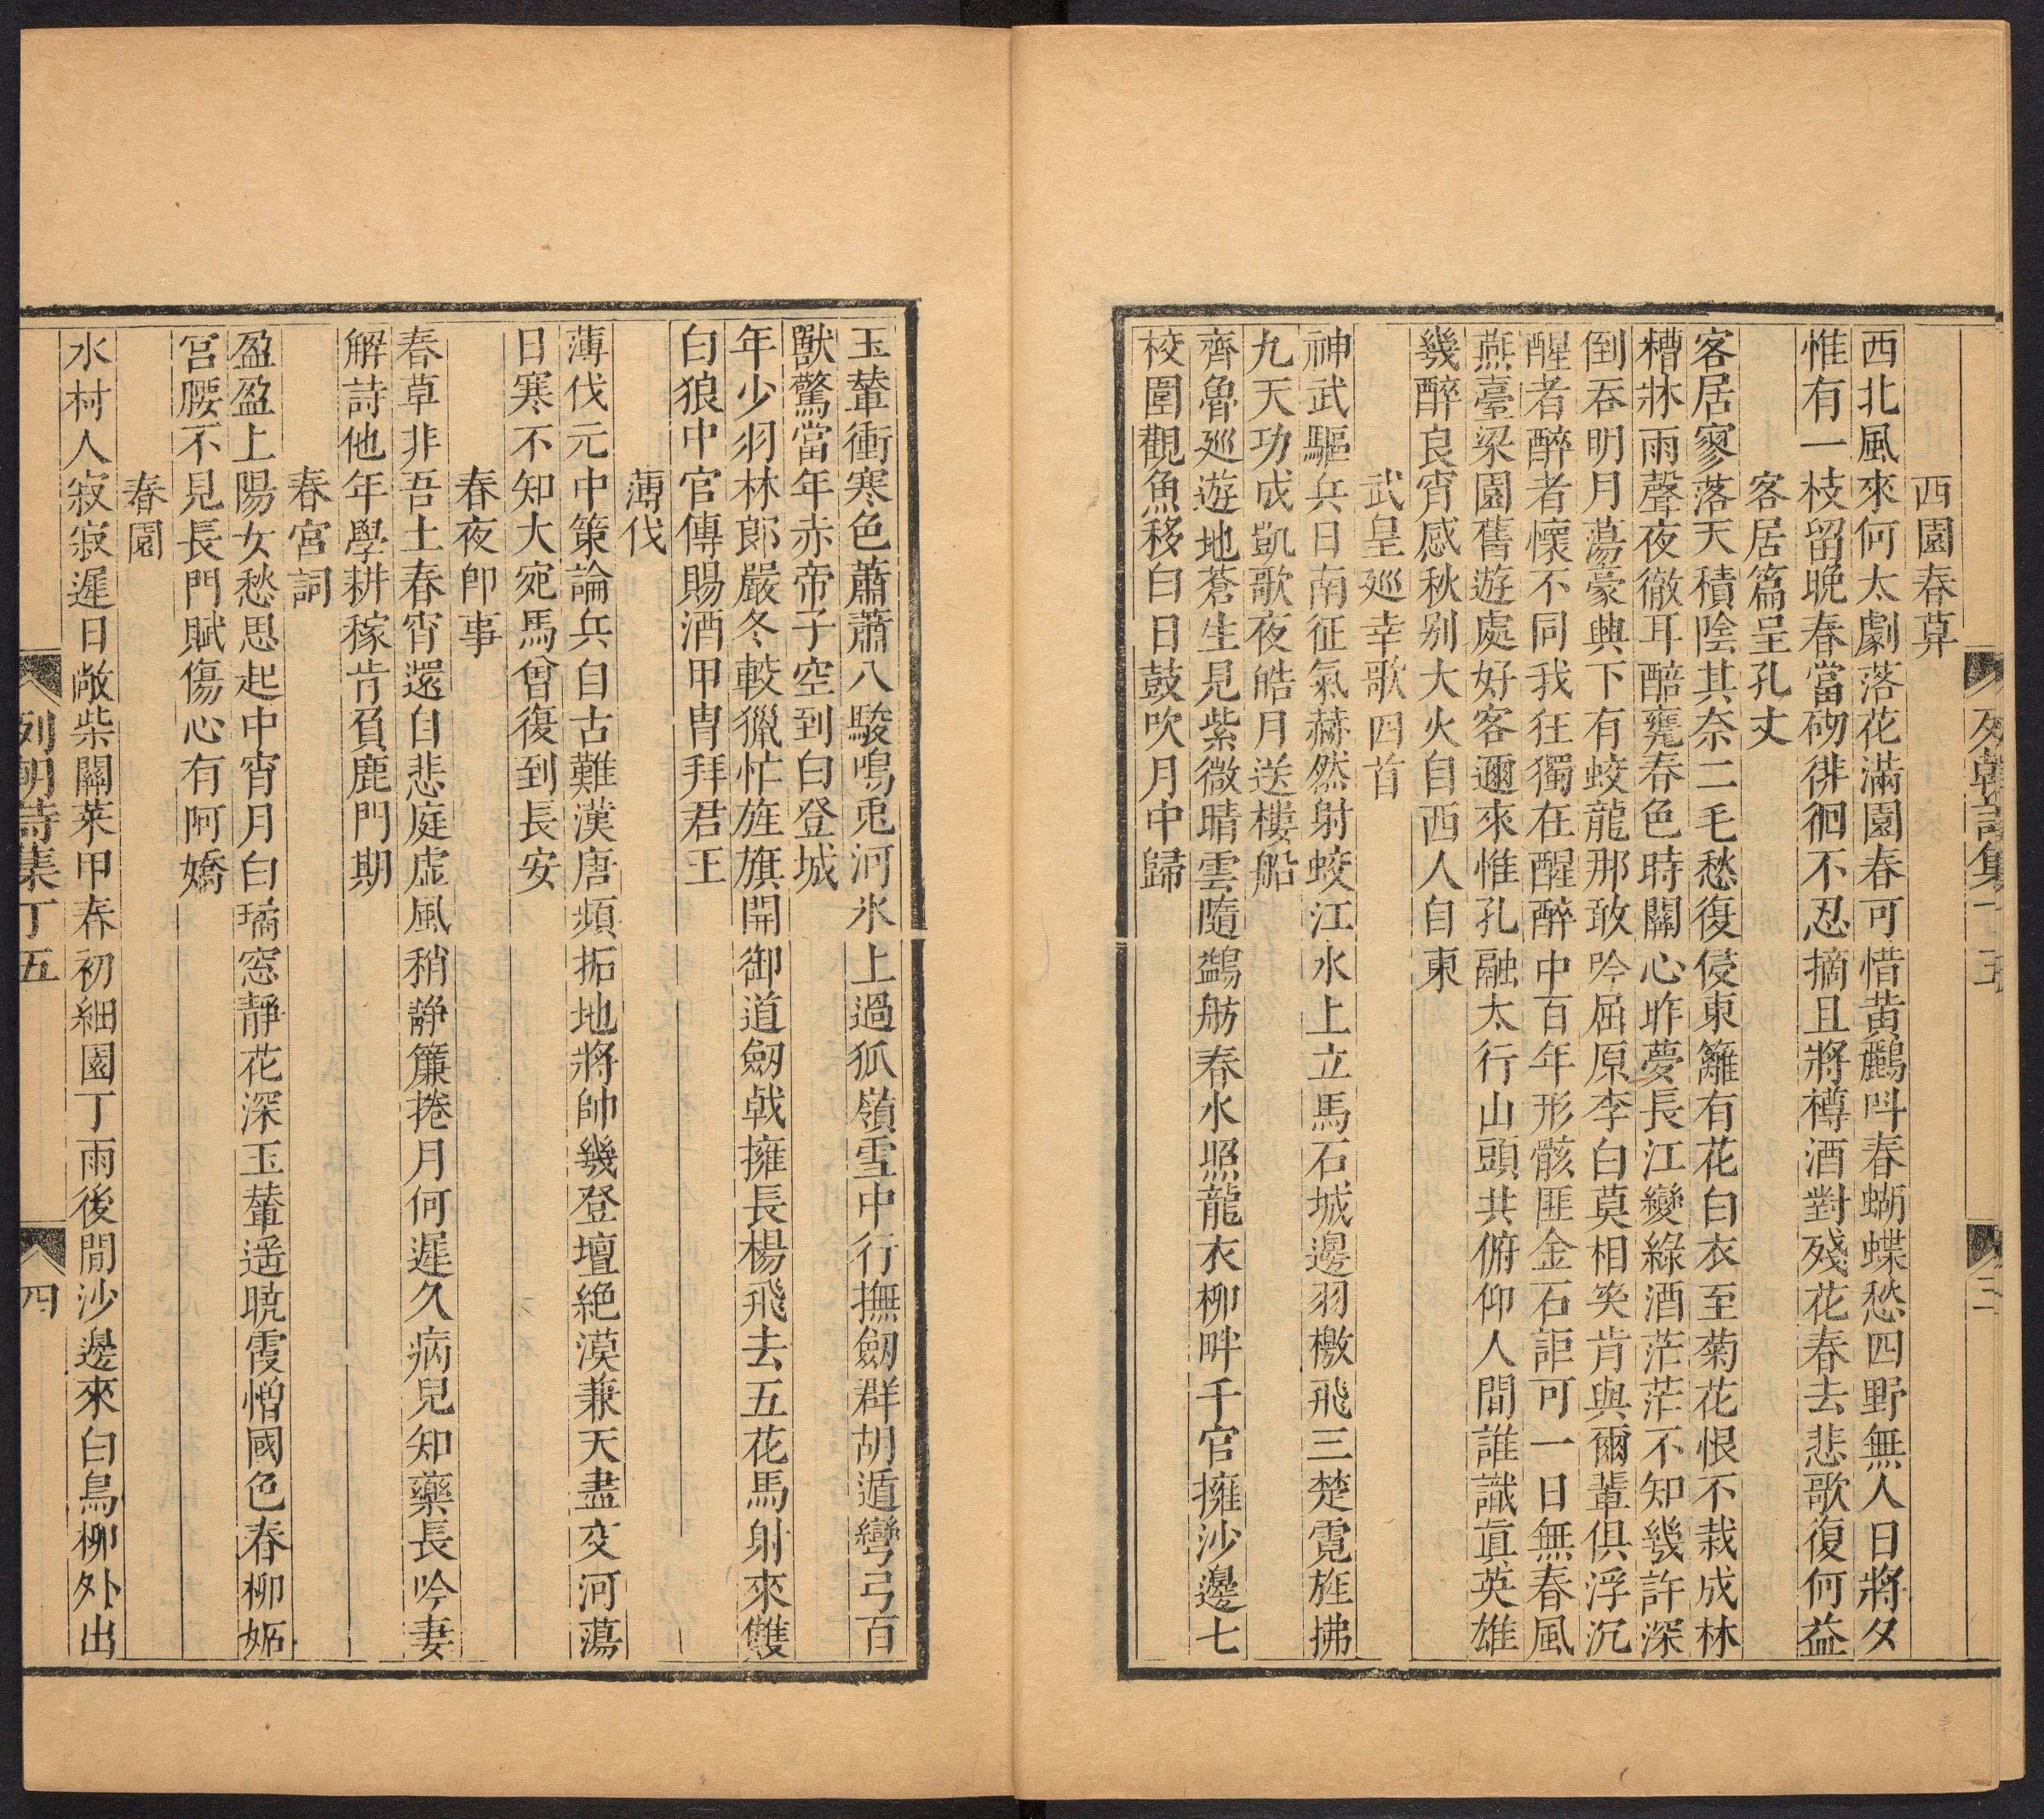 西園春算
西北風來何太劇落花滿園春可惜黃鸝呌春蝴蝶愁四野無人日將夕
惟有一枝留晚春當砌徘徊不忍摘且將樽酒對殘花春去悲歌復何益
客居篇呈孔丈
客居寥落天積陰其奈二毛愁復侵東籬有花白衣至菊花恨不栽成林
糟牀雨聲夜徹耳醅甕春色時關心昨夢長江變綠酒茫茫不知幾許深
倒吞明月蕩豪興下有蛟龍那敢吟屈原李白莫相笑肯與爾輩俱浮沉
醒者醉者懷不同我狂獨在醒醉中百年形骸匪金石詎可一日無春風
燕臺梁園舊遊處好客邇來惟孔融太行山頭共俯仰人間誰識眞英雄
幾醉良宵感秋别大火自西人自東
武皇廵幸歌四首
神武驅兵日南征氣赫然射蛟江水上立馬石城邊羽檄飛三楚霓旌拂
九天功成凱歌夜皓月送樓船
齊魯廵遊地蒼生見紫微晴雲隨鷁舫春水照龍衣柳畔千官擁沙邊七
校圍觀魚移白日鼓吹月中歸
列朝詩集丁五
三
玉輦衝寒色蕭蕭八駿鳴兎河氷上過狐嶺雪中行撫劒群胡遁彎弓百
獸驚當年赤帝子空到白登城
年少羽林郞嚴冬較獵忙旌旗開御道劒戟擁長楊飛去五花馬射來雙
白狼中官傳賜酒甲胄拜君王
薄伐
薄伐元中策論兵自古難漢唐頻拓地將帥幾登壇絶漠兼天盡交河蕩
日寒不知大宛馬曾復到長安
春夜卽事
春草非吾土春宵還自悲庭虛風稍靜簾捲月何遲久病兒知藥長吟妻
解詩他年學耕稼肯負鹿門期
春宮詞
盈盈上陽女愁思起中宵月白璚窓靜花深玉輦遥暁霞憎國色春柳妬
宮腰不見長門賦傷心有阿嬌
春園
水村人寂寂遲日敞柴關菜甲春初細園丁雨後閒沙邊來白鳥柳外出
列朝詩集丁五
四